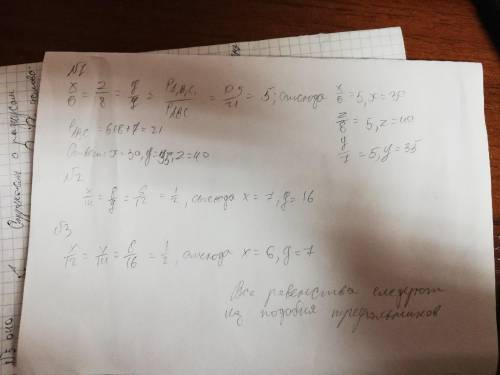 №1
x/6 = z/8 = y/7 = P A₁B₁C₁ / P ABC = 105/21 = 5; отсюда x/6 = 5, x = 30
z/8 = 5, z = 40
y/7 = 5, y = 35
P ABC = 6+8+7 = 21
Ответ: x = 30, y = 35, z = 40
№2
x/14 = 8/y = 6/12 = 1/2, отсюда x = 7, y = 16
№3
x/12 = y/14 = 8/16 = 1/2, отсюда x = 6, y = 7
Все равенства следуют
из подобия треугольников